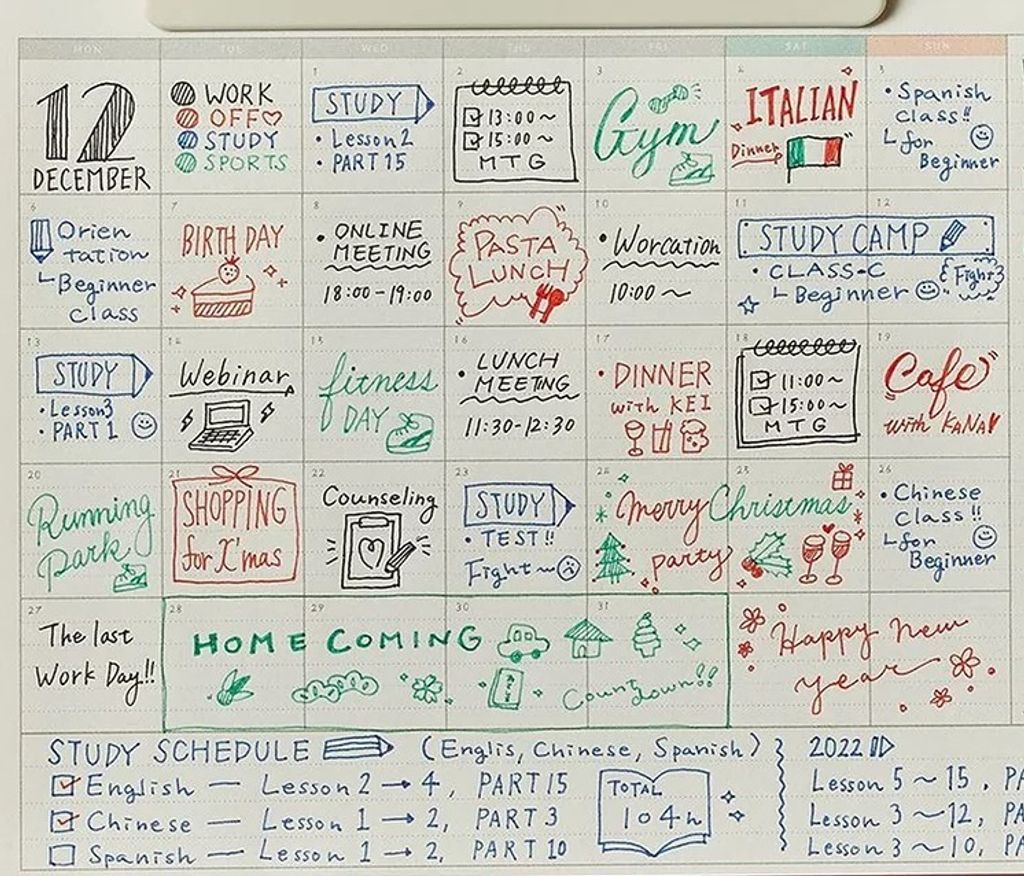 MON TUE WED THU FRI SAT SUN
12
DECEMBER
WORK
OFF♡
STUDY
SPORTS
1
STUDY
• Lesson 2
• PART 15
2
13:00~
15:00~
MTG
3
Gym
4
ITALIAN
Dinner
5
• Spanish
class!!
└for
Beginner
6
Orien
tation
└Beginner
class
7
BIRTHDAY
8
• ONLINE
MEETING
18:00-19:00
9
PASTA
LUNCH
10
• Worcation
10:00~
11 12
STUDY CAMP
• CLASS-C
└Beginner
Fight
13
STUDY
• Lesson3
• PART 1
14
Webinar
15
fitness
DAY
16
• LUNCH
MEETING
11:30-12:30
17
• DINNER
with KEI
18
11:00~
15:00~
MTG
19
Cafe
with KANA
20
Running
park
21
SHOPPING
for X'mas
22
Counseling
23
STUDY
• TEST!!
Fight~
24 25
Merry Christmas
party
26
• Chinese
Class!!
└for
Beginner
27
The last
Work Day!!
28 29 30 31
HOME COMING
Count down!!
Happy new
year
STUDY SCHEDULE (Englis, Chinese, Spanish)
English — Lesson 2 → 4, PART 15
Chinese — Lesson 1 → 2, PART 3
Spanish — Lesson 1 → 2, PART 10
TOTAL
104h
2022
Lesson 5~15, PA
Lesson 3~12, PA
Lesson 3~10, PA